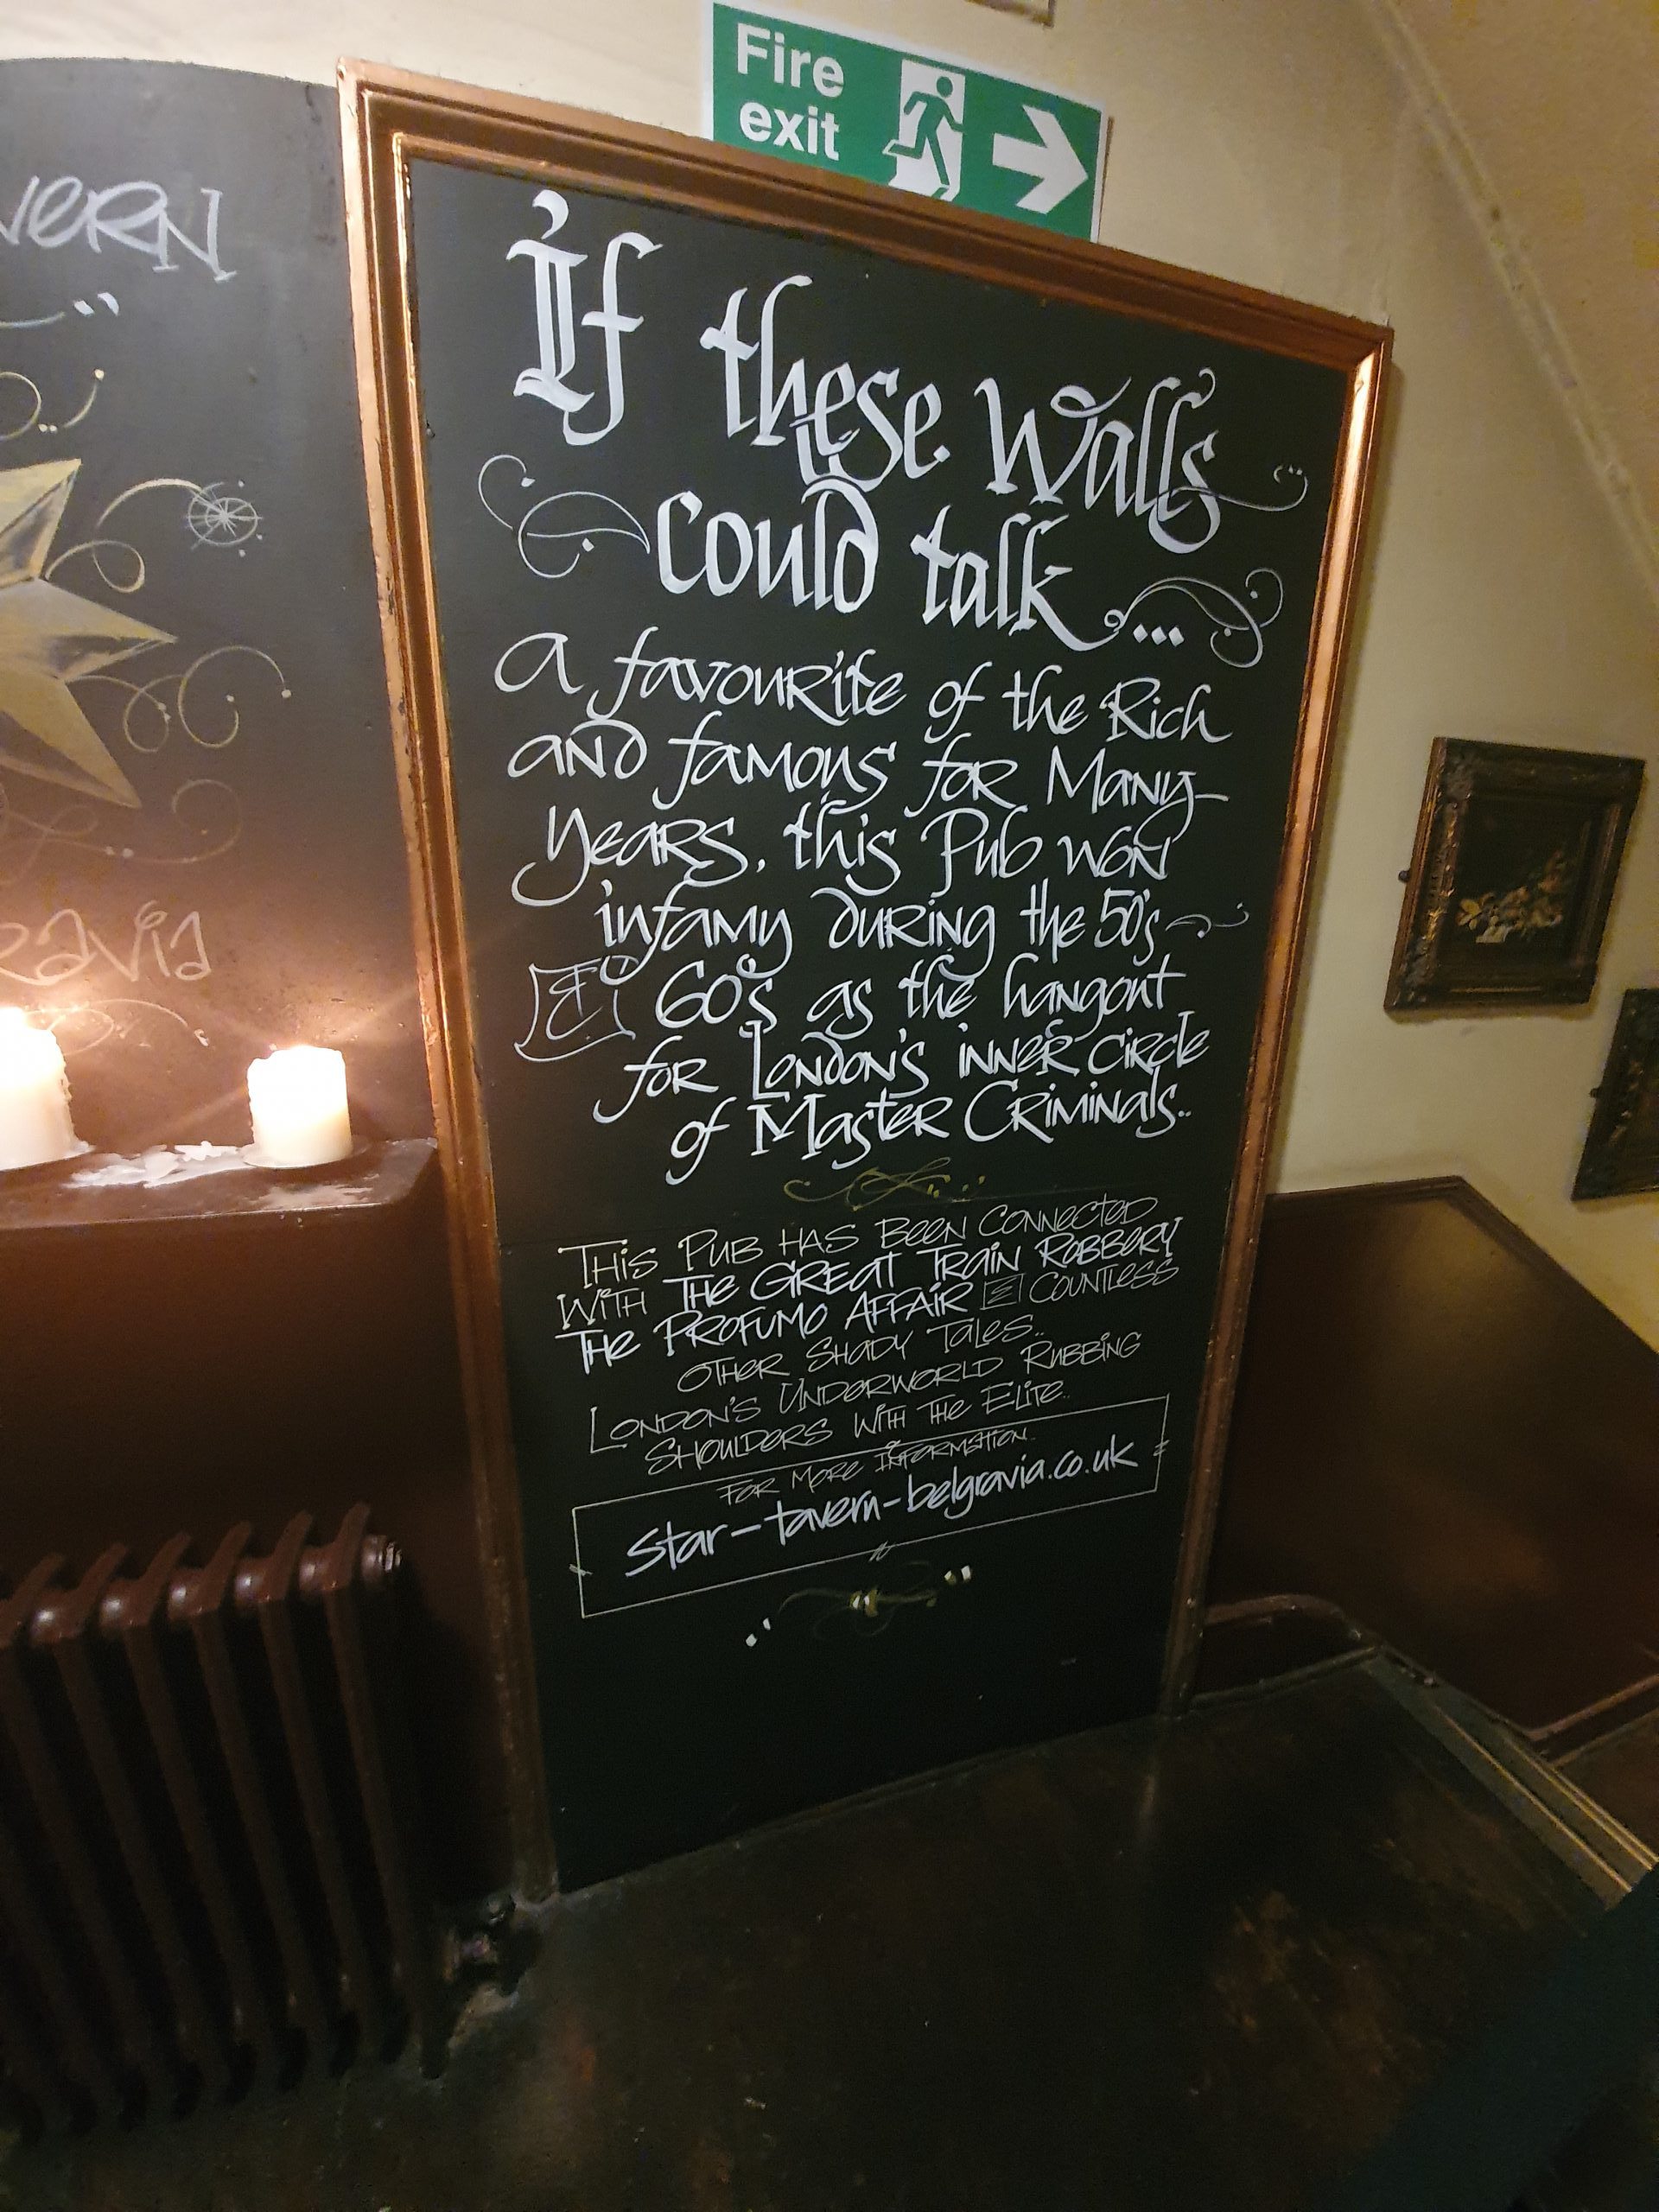 Fire
exit
VERN
ravia
If these Walls
could talk...
A favourite of the Rich
and famous for Many
Years, this Pub won
infamy during the 50's
& 60's as the hangout
for London's inner circle
of Master Criminals..
THIS PUB HAS BEEN CONNECTED
WITH THE GREAT TRAIN ROBBERY
THE PROFUMO AFFAIR & COUNTLESS
OTHER SHADY TALES..
LONDON'S UNDERWORLD RUBBING
SHOULDERS WITH THE ELITE..
FOR MORE INFORMATION..
star-tavern-belgravia.co.uk